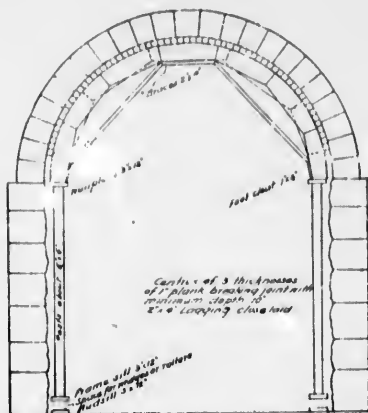 Braces 2"x4"
3"x12"
Foot cleat 1"x6"
Posts about 6"x6"
Centres of 3 thicknesses
of 1" plank breaking joint with
minimum depth 10"
2"x4" Lagging close laid
Frame sill 3"x12"
Space for wedges or rollers
Mudsill 3"x12"